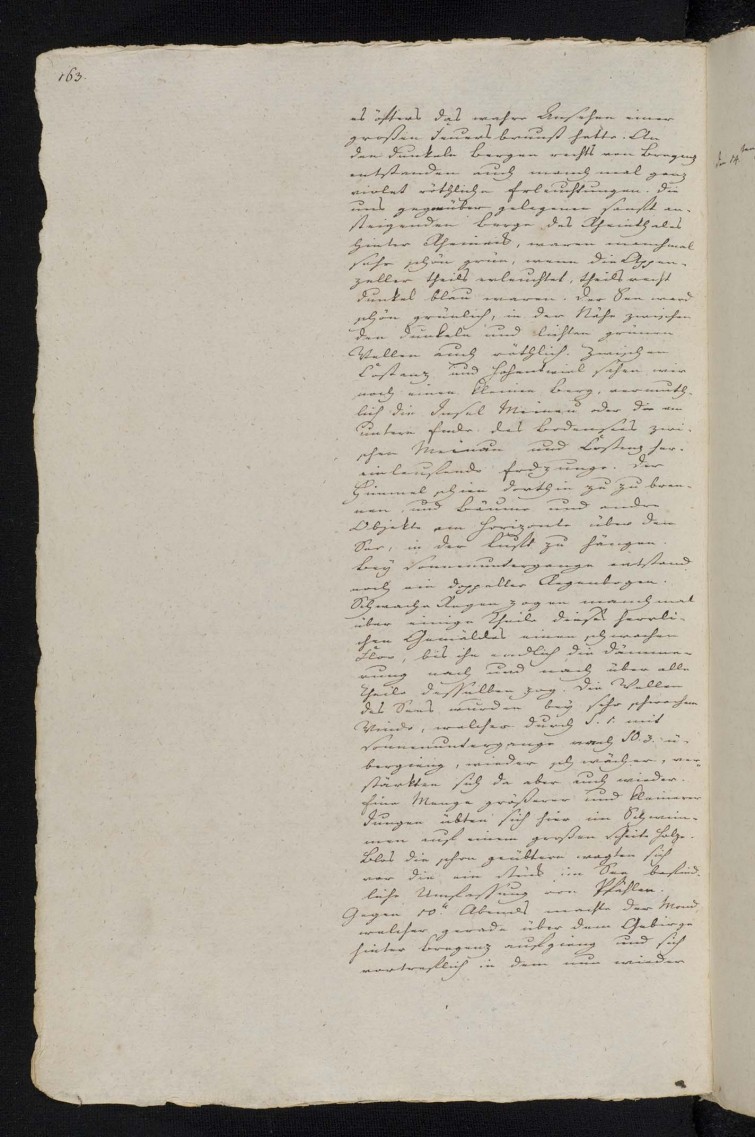 163.
es öfters das wahre Ansehen einer
großen Feuersbrunst hatte. An
den dunkeln Bergen rechts von Bregenz
entstanden auch manchmal ganz
violet röthliche Erleuchtungen. Die
uns gegenüber gelegenen sanft an-
steigenden Berge des Rheinthales
hinter Rheineck, waren manchmal
sehr schön grün, wenn die Appen-
zeller theils erleuchtet, theils recht
dunkel blau waren. Der See war
schön grünlich, in der Nähe zwischen
den dunkeln und lichten grünen
Wellen auch röthlich. Zwischen
Costanz und Hohentwiel sahen wir
noch einen kleinen Berg, vermuth-
lich die Insel Meinau oder die am
untern Ende des Bodensees zwi-
schen Meinau und Costanz her-
einlaufende Erdzunge. Der
Himmel schien dorthin zu zu bren-
nen, und Bäume und andre
Objekte am Horizonte über dem
See, in der Luft zu hängen.
Bey Sonnenuntergange entstand
noch ein doppelter Regenbogen.
Schwache Regen zogen manchmal
über einige Theile dieses herrli-
chen Gemäldes einen schwachen
Flor, bis ihn endlich die Dämme-
rung nach und nach über alle
Theile desselben zog. Die Wellen
des Sees wurden bey sehr schwachem
Winde, welcher durch S. mit
Sonnenuntergange nach SO. ü-
bergieng, wieder schwächer, ver-
stärkten sich da aber auch wieder.
Eine Menge größerer und kleinerer
Jungen übten sich hier im Schwim-
men auf einem großen Scheite Holze.
Blos die schon geübtern wagten sich
vor die ein Stück im See befind-
liche Umfassung von Pfählen.
Gegen 10 Abends machte der Mond
welcher gerade über dem Gebirge
hinter Bregenz aufgieng und sich
vortreflich in dem nun wieder